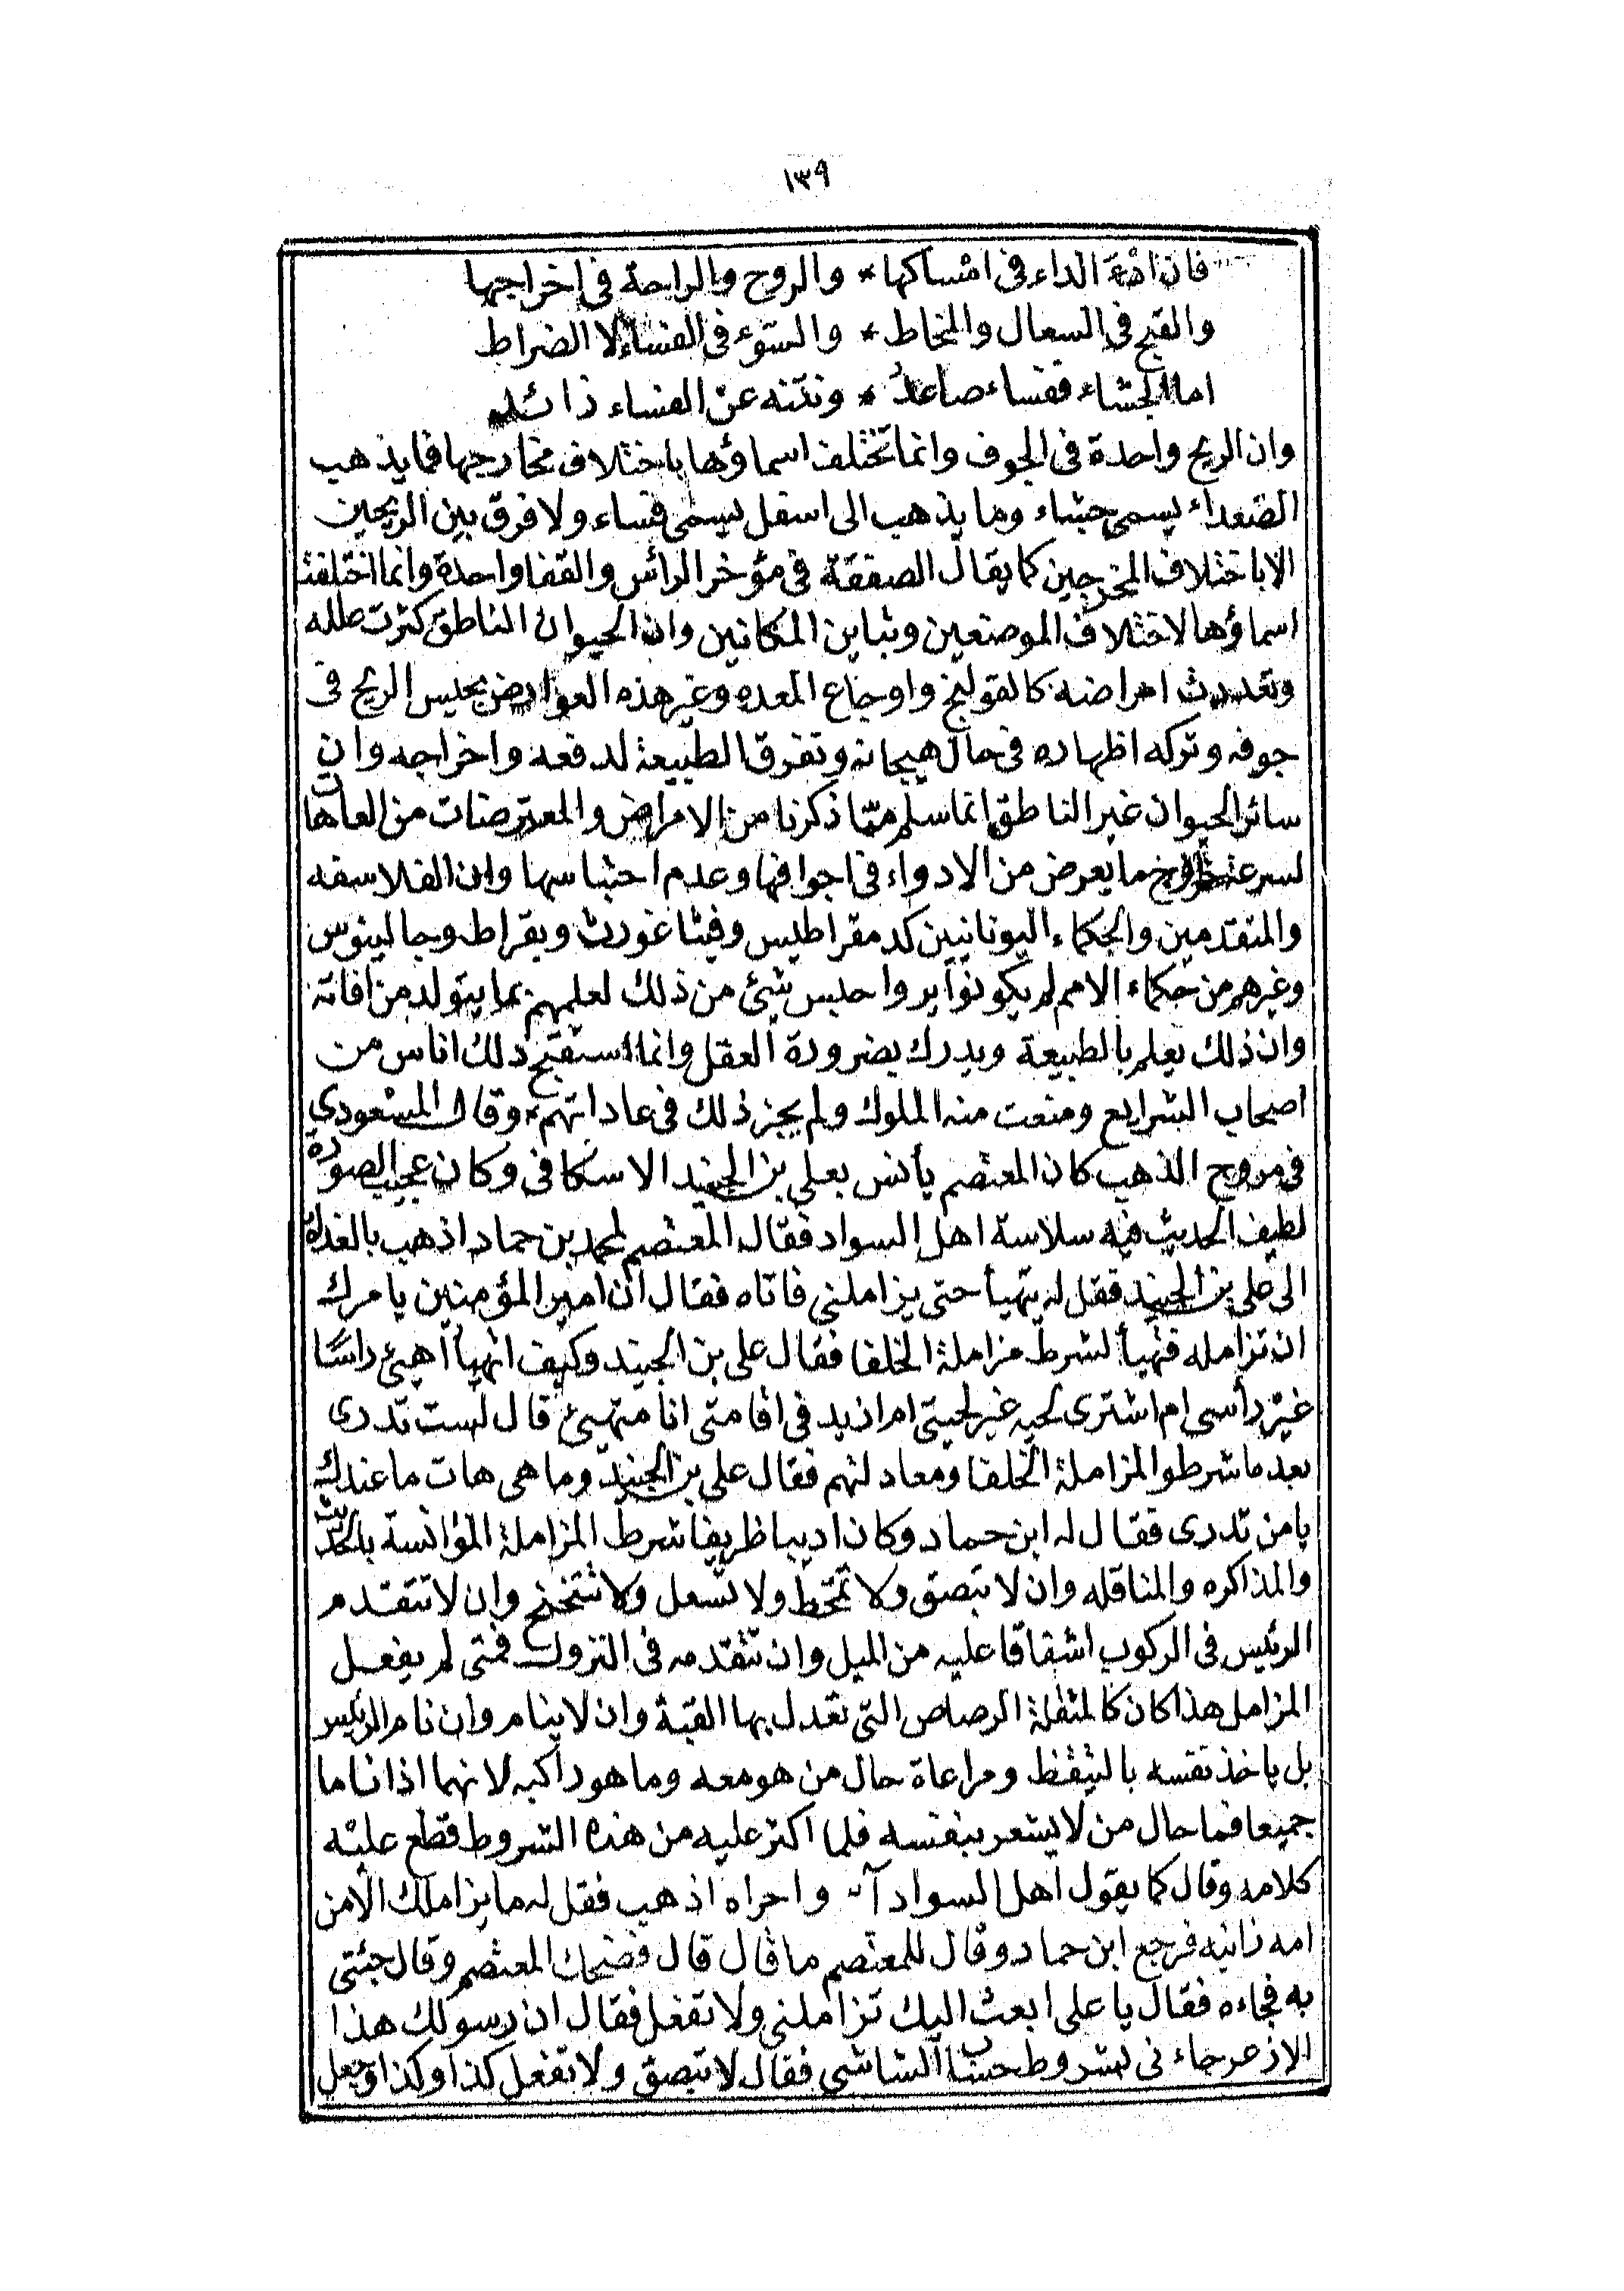 ١٣٩
فان ادهى الداء فى امساكها * والروح والراحة فى اخراجها
والقبح فى السعال والمخاط * والسوء فى الفساء لا الضراط
اما الجشاء ففساء صاعد * ونتنه عن الفساء زائد
وان الريح واحدة فى الجوف وانما تختلف اسماؤها باختلاف مخارجها فما يذهب
الصعداء يسمى جشاء وما يذهب الى اسفل يسمى فساء ولا فرق بين الريحين
الا باختلاف المخرجين كما يقال الصفقة فى مؤخر الرأس والقفا واحدة وانما اختلفت
اسماؤها لاختلاف الموضعين وتباين المكانين وان الحيوان الناطق كثرت علله
وتعددت امراضه كالقولنج واوجاع المعده وغير هذه العوارض بحبس الريح فى
جوفه وتركه اظهاره فى حال هيجانه وتفرق الطبيعة لدفعه واخراجه وان
سائر الحيوان غير الناطق انما سلم مما ذكرنا من الامراض والمعترضات من العاهات
لسرعة خروج ما يعرض من الادواء فى اجوافها وعدم احتباسها وان الفلاسفه
والمتقدمين والحكماء اليونانيين كدمقراطيس وفيثاغورث وبقراط وجالينوس
وغيرهم من حكماء الامم لم يكونوا يروا حبس شئ من ذلك لعلمهم بما يتولد من افاته
وان ذلك يعلم بالطبيعة ويدرك بضرورة العقل وانما استقبح ذلك اناس من
اصحاب الشرايع ومنعت منه الملوك ولم يجز ذلك فى عاداتهم * وقال المسعودي
فى مروج الذهب كان المعتصم يأنس بعلي بن الجنيد الاسكافى وكان عجيب الصورة
لطيف الحديث فيه سلاسة اهل السواد فقال المعتصم لمحمد بن حماد اذهب بالغداة
الى على بن الجنيد فقل له يتهيأ حتى يزاملني فاتاه فقال ان امير المؤمنين يامرك
ان تزامله فتهيأ لشرط مزاملة الخلفا فقال على بن الجنيد وكيف اتهيأ اهيئ راسًا
غير رأسى ام اشترى لحيه غير لحيتى ام ازيد فى اقامتى انا متهيئ قال لست تدرى
بعد ما شرطو المزاملة الخلفا ومعادلتهم فقال على بن الجنيد وما هى هات ما عندك
يا من تدرى فقال له ابن حماد وكان اديبا ظريفا شرط المزاملة المؤانسة بالحديث
والمذاكره والمناقله وان لا تبصق ولا تتمخط ولا تسعل ولا تتنحنح وان لا تتقدم
الرئيس فى الركوب اشفاقا عليه من الميل وان تتقدمه فى النزول فمتى لم يفعل
المزامل هذا كان كالمثقلة الرصاص التى تعدل بها القبة وان لا ينام وان نام الرئيس
بل ياخذ نفسه بالتيقظ ومراعاة حال من هو معه وما هو راكبه لانهما اذا ناما
جميعا فما حال من لا يشعر بنفسه فلما اكثر عليه من هذه الشروط قطع عليه
كلامه وقال كما يقول اهل السواد آه واحراه اذهب فقل له ما يزاملك الا من
امه زانيه فرجع ابن حماد وقال للمعتصم ما قال قال فضحك المعتصم وقال جئنى
به فجاءه فقال يا على ابعث اليك تزاملنى ولا تفعل فقال ان رسولك هذا
الازعر جاءنى بشروط حسان الشاشى فقال لا تبصق ولا تفعل كذا وكذا وجعل